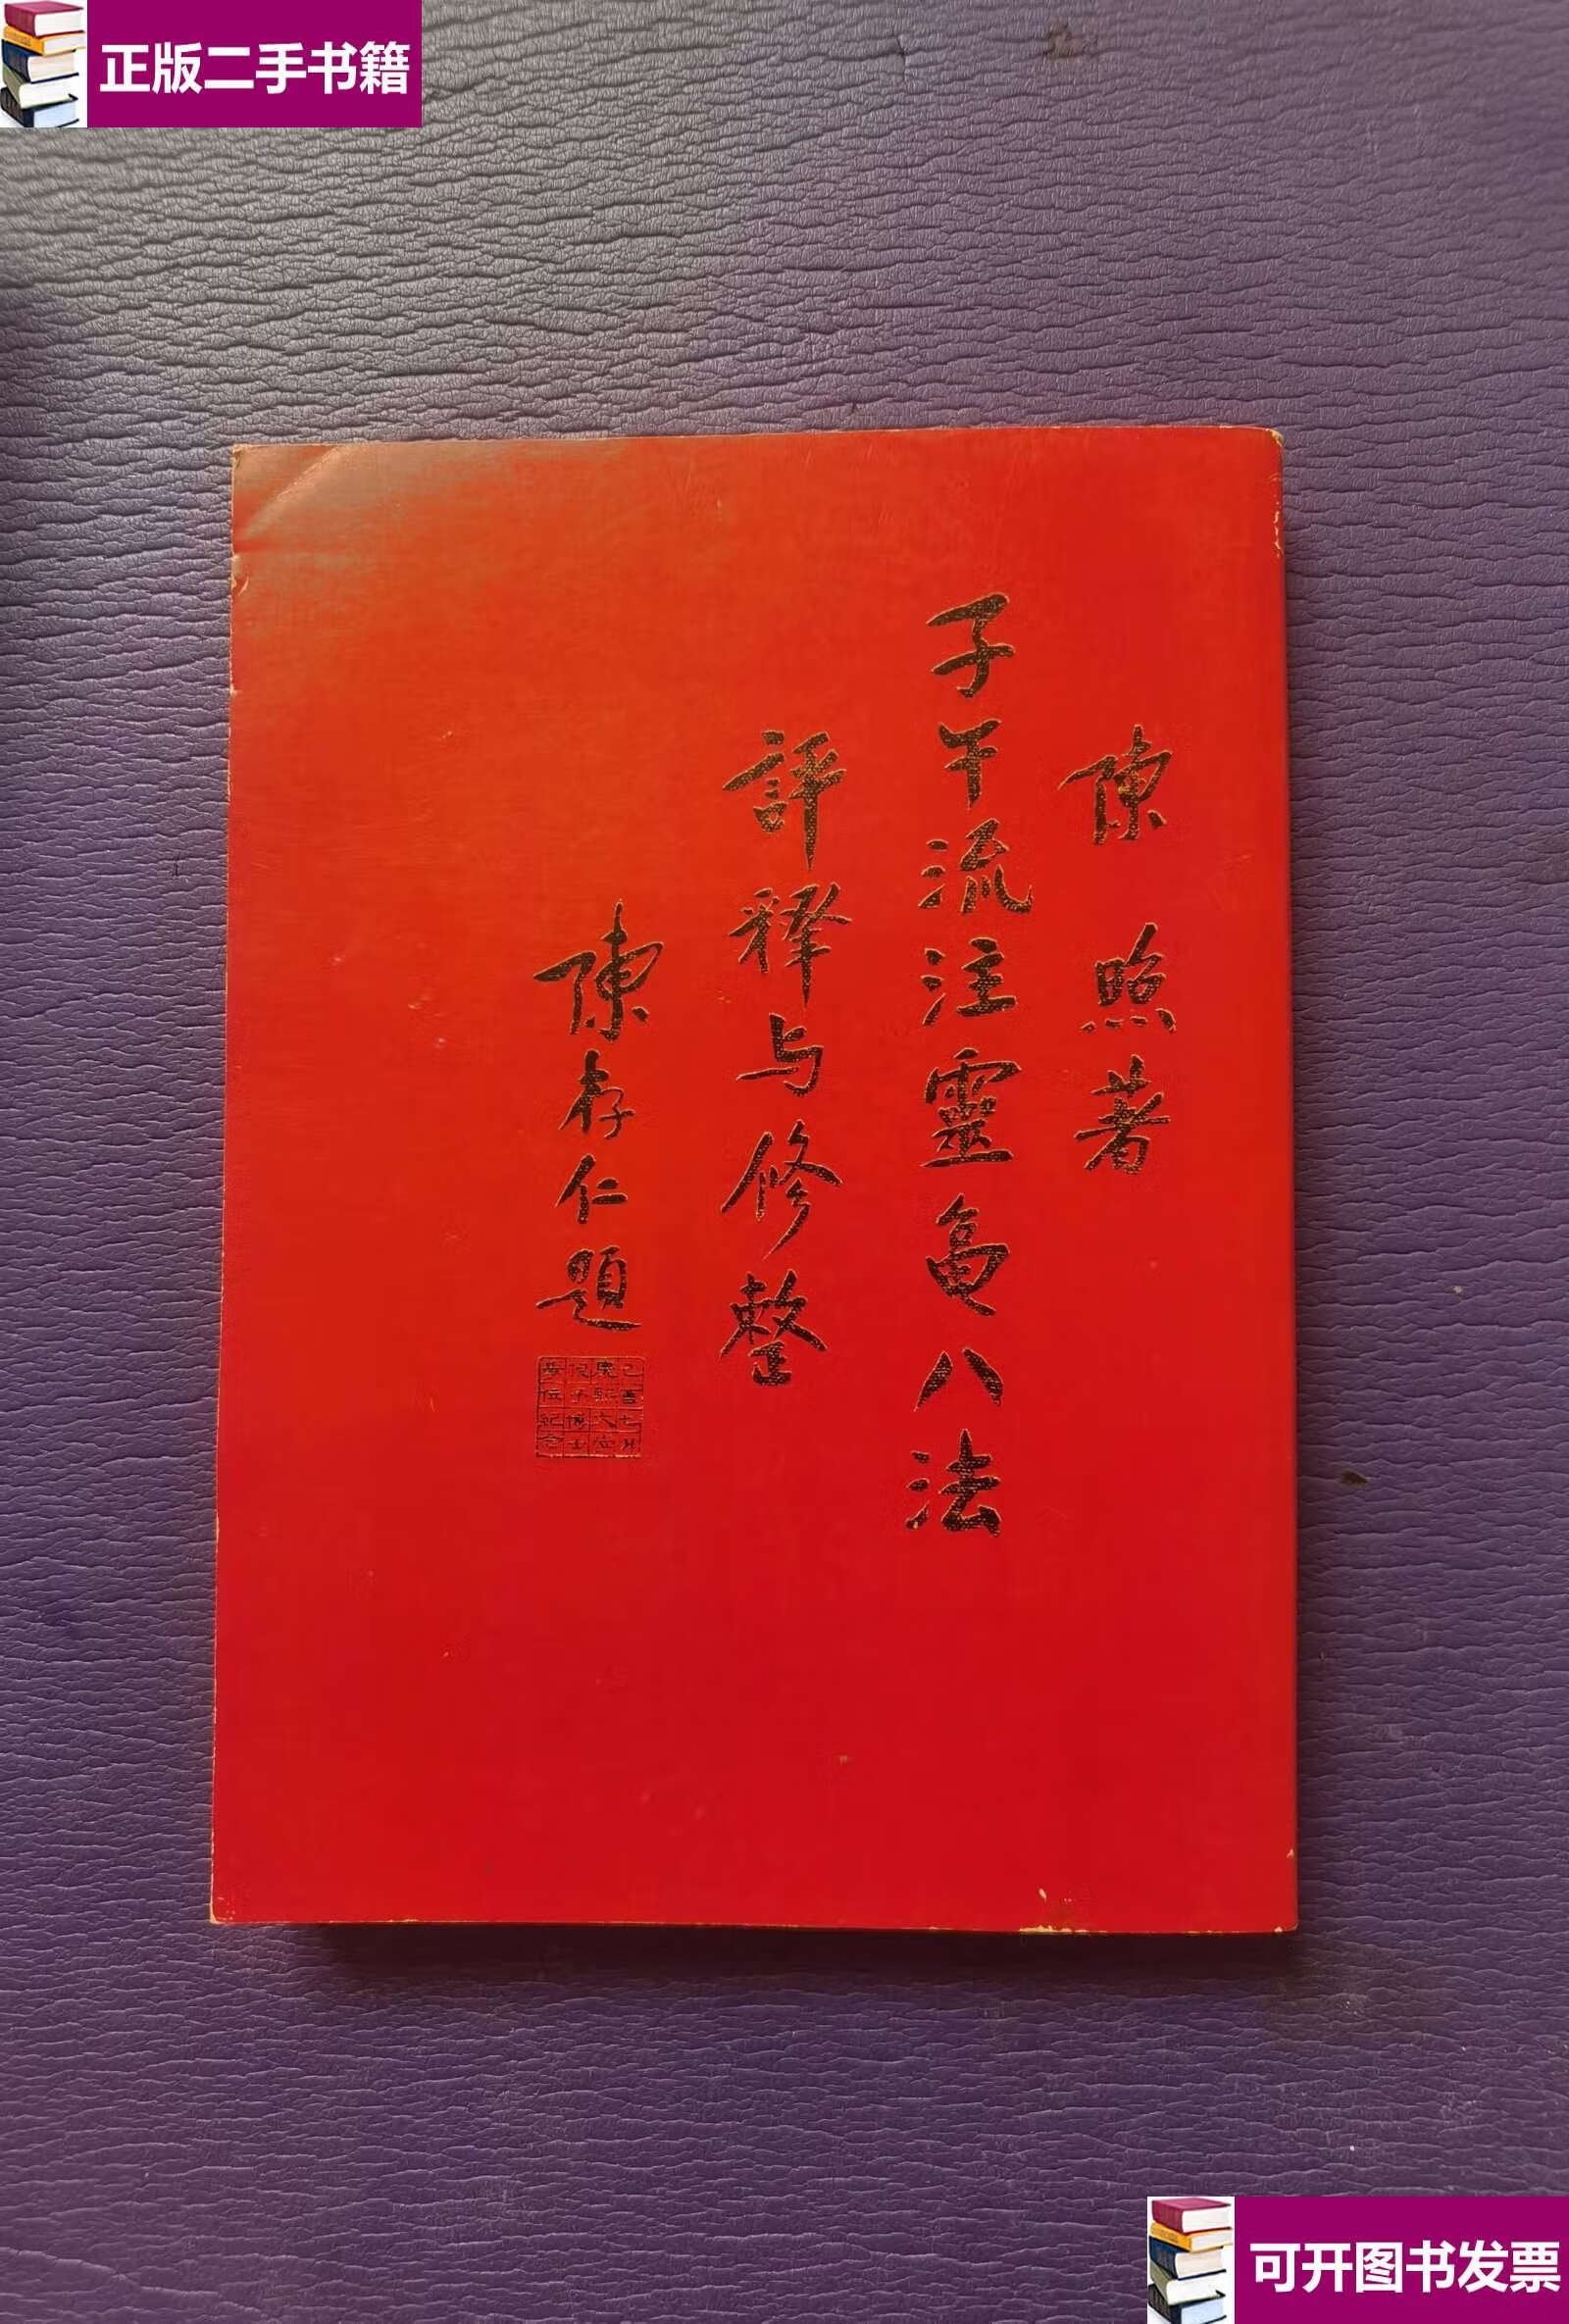 正版二手书籍
陳照著
子午流注靈龟八法
評釋与修整
陳存仁題
可开图书发票